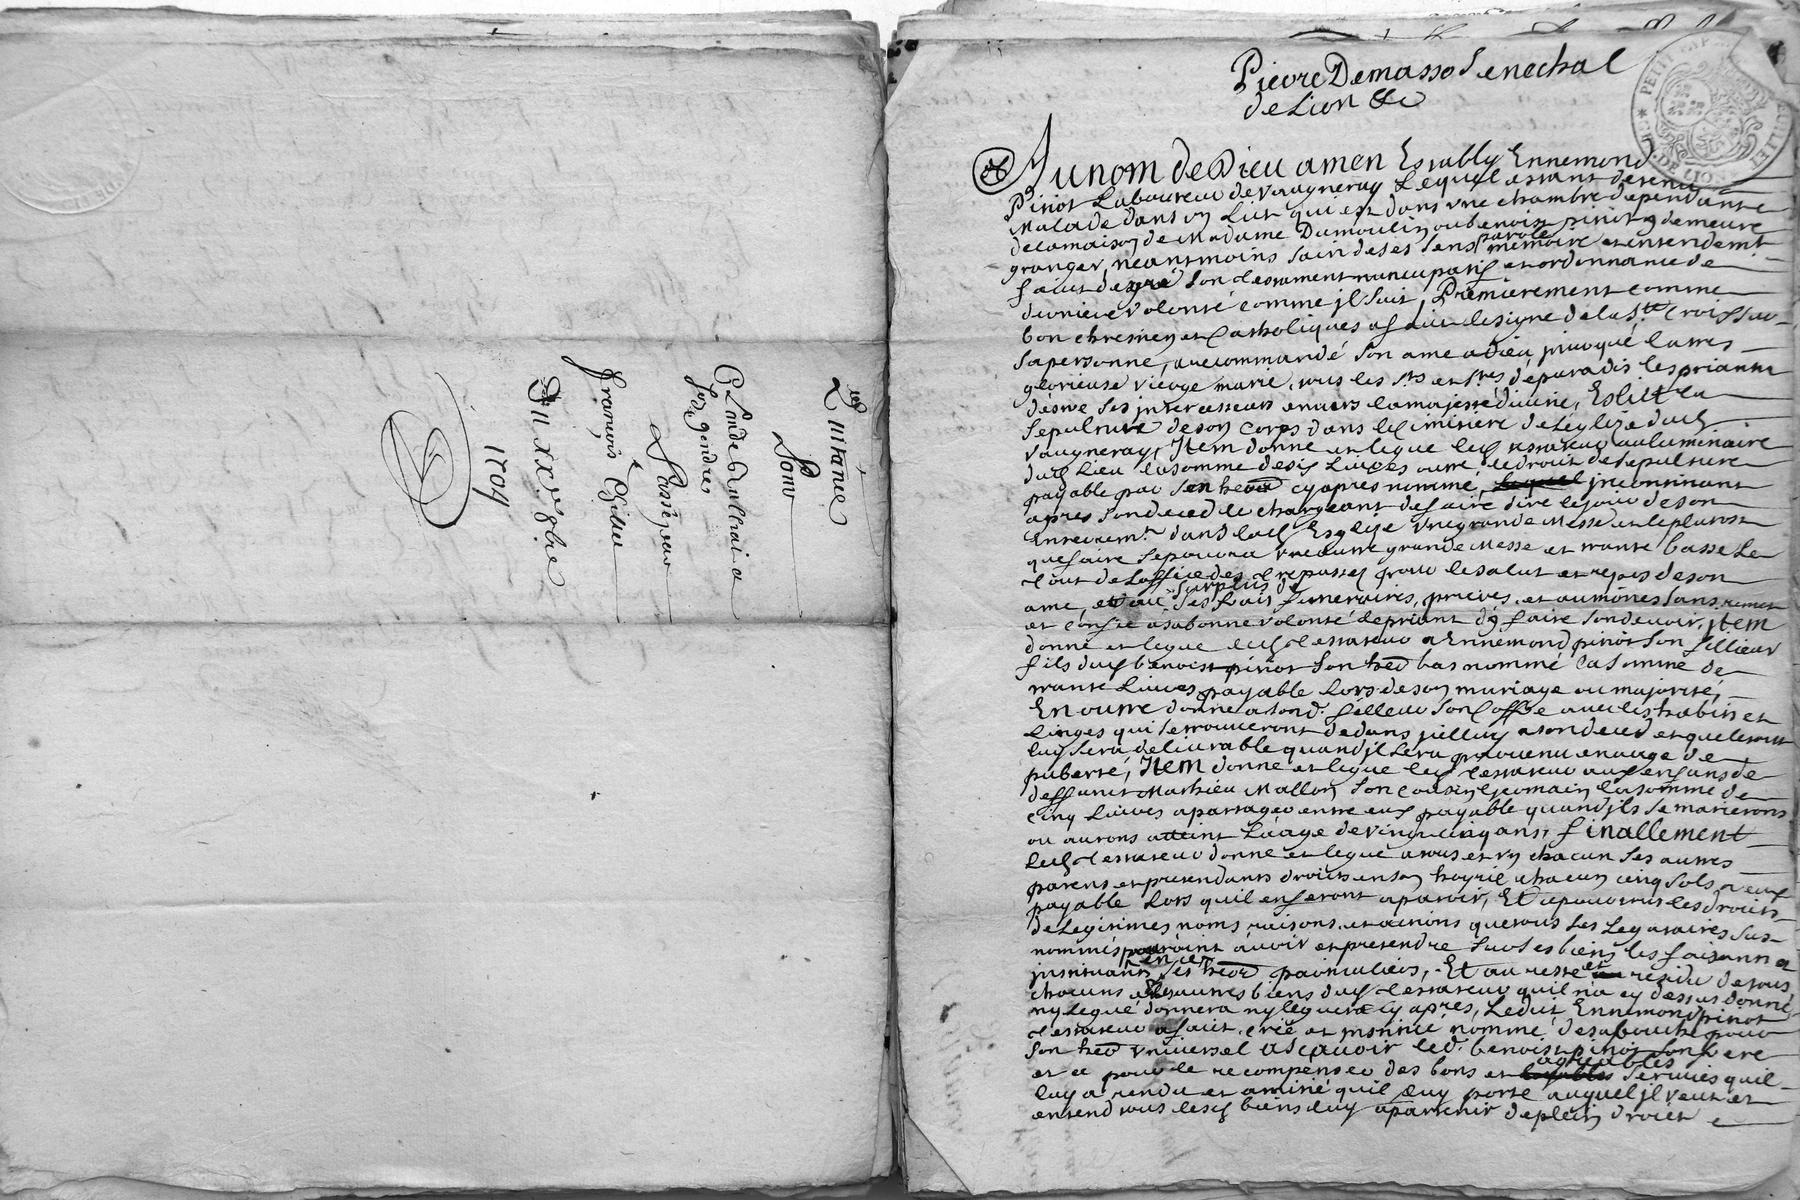 1er
Quittance
Pour
Claude Guilliat a
ses gendres
La
François
Du xxve 8bre
1704
Pierre Demasso Senechal
de Lion &c
Au nom de Dieu amen Estably Ennemond
Pinot Laboureur de Vaugneray Lequel estant detenu
Malade dans un Lict qui est dans une chambre dependante
de la maison de Madame Dumoulin ou benoist pinot y demeure
granger, neantmoins sain de ses sens parole memoire et entendemt
faict de gré son testament nuncupatif et ordonnance de
derniere volonté comme jl suit, Premierement comme
bon chrestien et Catholiques a faict le signe de la Ste Croix sur
sa personne, recommandé son ame a Dieu, jnvoqué la tres
glorieuse vierge marie, tous les Sts et Stes de paradis les priant
destre ses jntercesseurs envers la majesté divine, Eslit la
sepulture de son corps dans le Cimitiere de Leglize dud
Vaugneray, Item donne et legue led testateur au luminaire
dud Lieu la somme de six Livres outre le droit de sepulture
payable par son heor cy apres nommé, jncontinant
apres son deced le chargeant de faire dire le jour de son
Enterremt dans lad Esglise une grande Messe et le plutost
que faire se pourra une autre grande Messe et trante basse Le
tout de Loffice des trepassez pour le salut et repos de son
ame, et au surplus de ses frais funeraires, prieres et aumones sans remet
et confie a sa bonne volonté le priant dy faire son devoir, jtem
donne et legue led testateur a Ennemond pinot son fillieur
fils dud benoist pinot son heor bas nommé la somme de
trante Livres payable Lors de son mariage ou majorité,
En outre donne a sond. filleur son coffre avec les habits et
Linges qui se trouveront dedans jcelluy a son deced et que le tout
luy sera delivrable quand jl sera parvenu en auge de
puberté, Item donne et legue led testateur aux enfans de
deffunct Mathieu Mallon son cousin germain la somme de
cinq Livres a partager entre eux payable quand jls se marieront
ou auront atteint Laage de vingt cinq ans, finallement
led testateur donne et legue a tous et un chacun ses autres
parens et pretendants droits en son hoyrie chacun cinq sols
payable Lors quil en feront aparoir, Et a pour tous les droits
de Legitimes noms raisons, et actions que tous ses Legataires sus
nommés pouroint avoir et pretendre sur ses biens les faisant et
jnstituant en ce ses heor particuliers, Et au reste et residu de tous
chacuns ses autres biens dud testateur quil na cy dessus donné
ny legué donnera ny leguera cy apres, Ledit Ennemond pinot
testateur a faict, créé et jnstitue nommé de sa bouche pour
son heor universel a scavoir led. benoist pinot son frere
et ce pour le recompenser des bons et agreables services quil
luy a rendu et amitié quil luy porte auquel jl veut et
entend tous lesd biens luy apartenir de plein droict